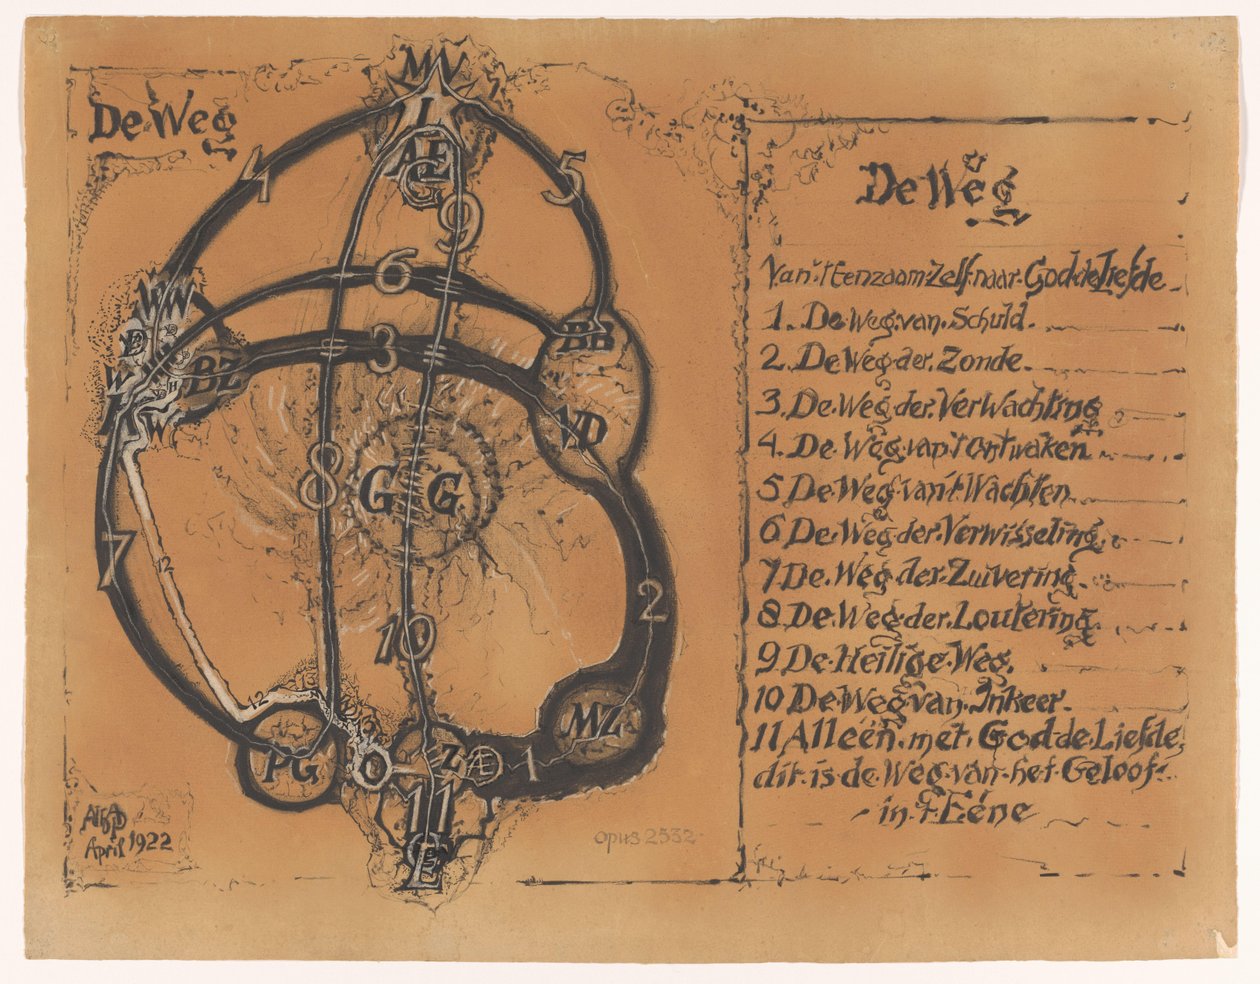 De Weg
MW
I
AE
G
4
5
9
6
WW
E
W
H
BZ
3
BB
AD
8
G G
7
12
2
10
12
PG
O
Z Æ
1
MZ
11
De Weg
Van 't Eenzaam Zelf naar God de Liefde
1. De Weg van Schuld.
2. De Weg der Zonde.
3. De Weg der Verwachting
4. De Weg van 't ontwaken
5 De Weg van 't Wachten
6 De Weg der Verwisseling
7 De Weg der Zuivering.
8 De Weg der Loutering
9 De Heilige Weg.
10 De Weg van Inkeer.
11 Alleen met God de Liefde,
dit is de Weg van het Geloof
in 't Eéne
April 1922
opus 2532